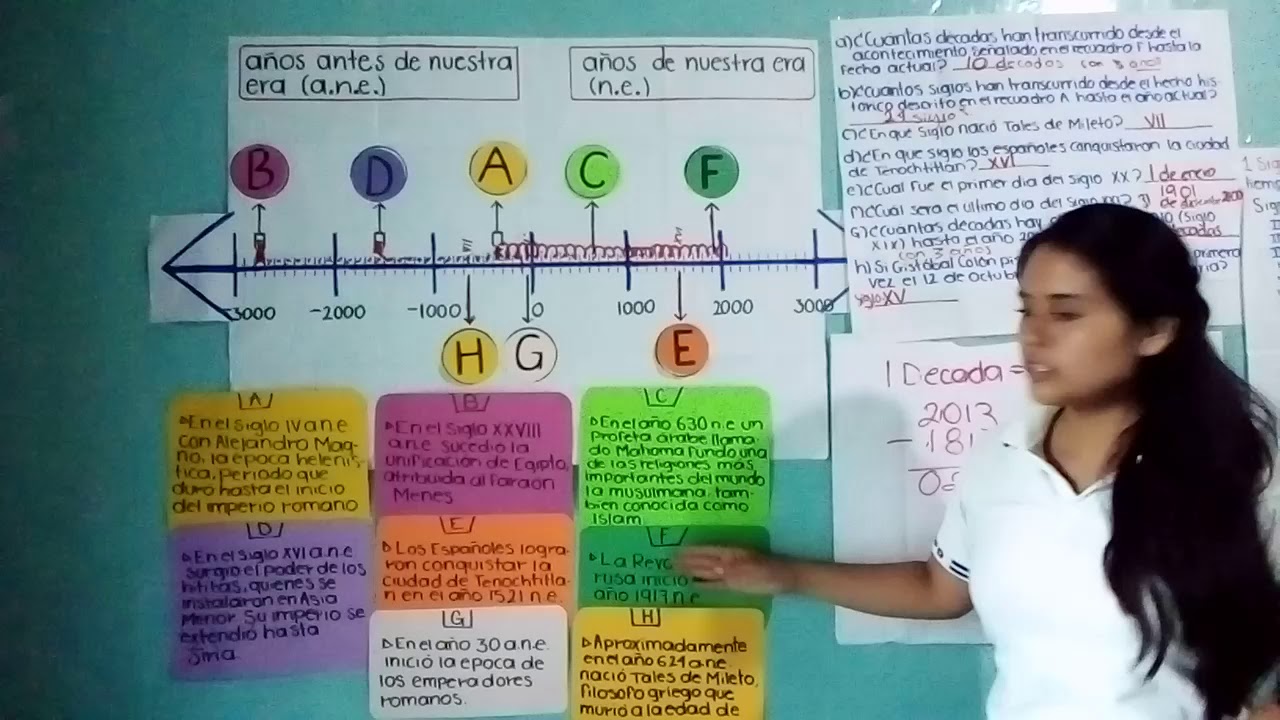 años antes de nuestra
era (a.n.e.)
años de nuestra era
(n.e.)
B
D
A
C
F
-3000
-2000
-1000
0
1000
2000
3000
H
G
E
A
▷En el siglo IV a.n.e
con Alejandro Mag-
no, la epoca helenis
tica, periodo que
duro hasta el inicio
del imperio romano
B
▷En el siglo XXVIII
a.n.e sucedió la
unificación de Egipto,
atribuida al faraon
Menes
C
▷En el año 630 n.e un
profeta árabe llama
do Mahoma fundo una
de las religiones más
importantes del mundo
la musulmana, tam-
bien conocida como
Islam
D
▷En el siglo XVI a.n.e
surgio el poder de los
hititas, quienes se
instalaron en Asia
Menor. Su imperio se
extendió hasta
Siria.
E
▷Los Españoles logra-
ron conquistar la
ciudad de Tenochtitla-
n en el año 1521 n.e.
F
▷La Rev
rusa inicio
año 1917 n.e
G
▷En el año 30 a.n.e.
inició la epoca de
los emperadores
romanos.
H
▷Aproximadamente
en el año 624 a.ne.
nació Tales de Mileto,
filosofo griego que
murió a la edad de
a)¿Cuántas decadas han transcurrido desde el
acontecimiento señalado en el recuadro F hasta la
fecha actual? 10 decadas con
b)¿Cuantos siglos han transcurrido desde el hecho his-
torico descrito en el recuadro A hasta el año actual?
c)¿En que siglo nació Tales de Mileto? VII
d)¿En que siglo los españoles conquistaron la ciudad
de Tenochtitlan? XVI
e)¿Cual fue el primer dia del siglo XX? 1 de enero
1901
¿Cuál sera el ultimo dia del siglo
de diciembre
G)¿Cuantas decadas hay
(siglo
XIX) hasta el año
con 3 años
h) Si Cristobal Colón
primera
vez el 12 de Octub
siglo XV
1 Decada =
2013
- 181
0
1 Sig